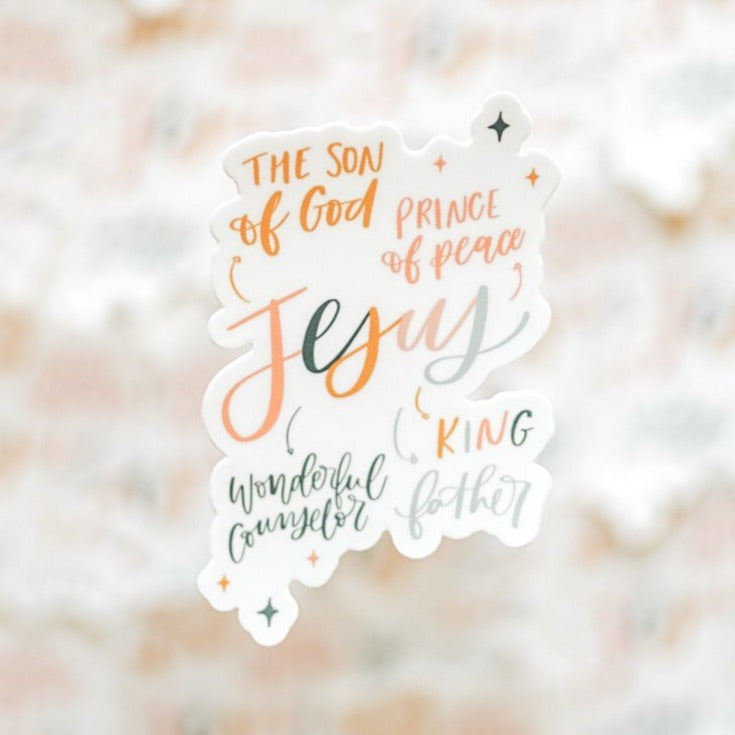 THE SON
of God
PRINCE
of peace
Jesus
KING
father
Wonderful
Counselor